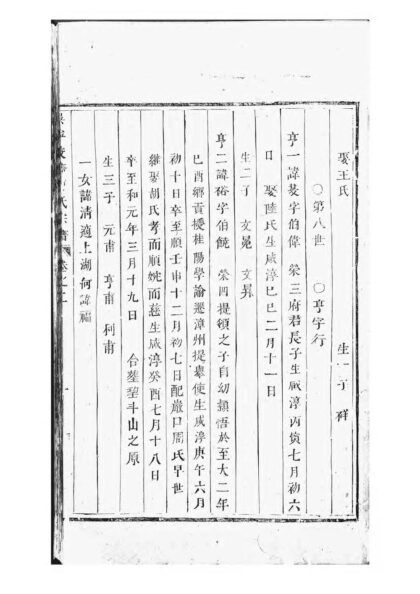 娶王氏 生一子 祥
○第八世 ○亨字行
亨一諱 字伯偉 榮三府君長子生咸淳丙寅七月初六
日 娶陸氏生咸淳己巳二月十一日
生二子 文 文昇
亨二諱裕字伯饒 榮四提領之子自幼穎悟於至大二年
己酉鄉貢授桂陽學諭遷漳州提舉使生咸淳庚午六月
初十日卒至順壬申十二月初七日配嚴口周氏早世
繼娶胡氏孝而順婉而慈生咸淳癸酉七月十八日
卒至和元年三月十九日 合葬 斗山之原
生三子 元甫 亨甫 利甫
一女諱清適上湖何諱福